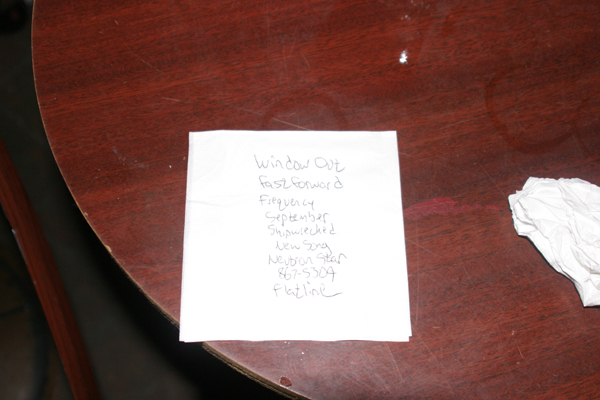 Window Out
Fast Forward
Frequency
September
Shipwrecked
New Song
Neutron Star
867-5309
Flatline